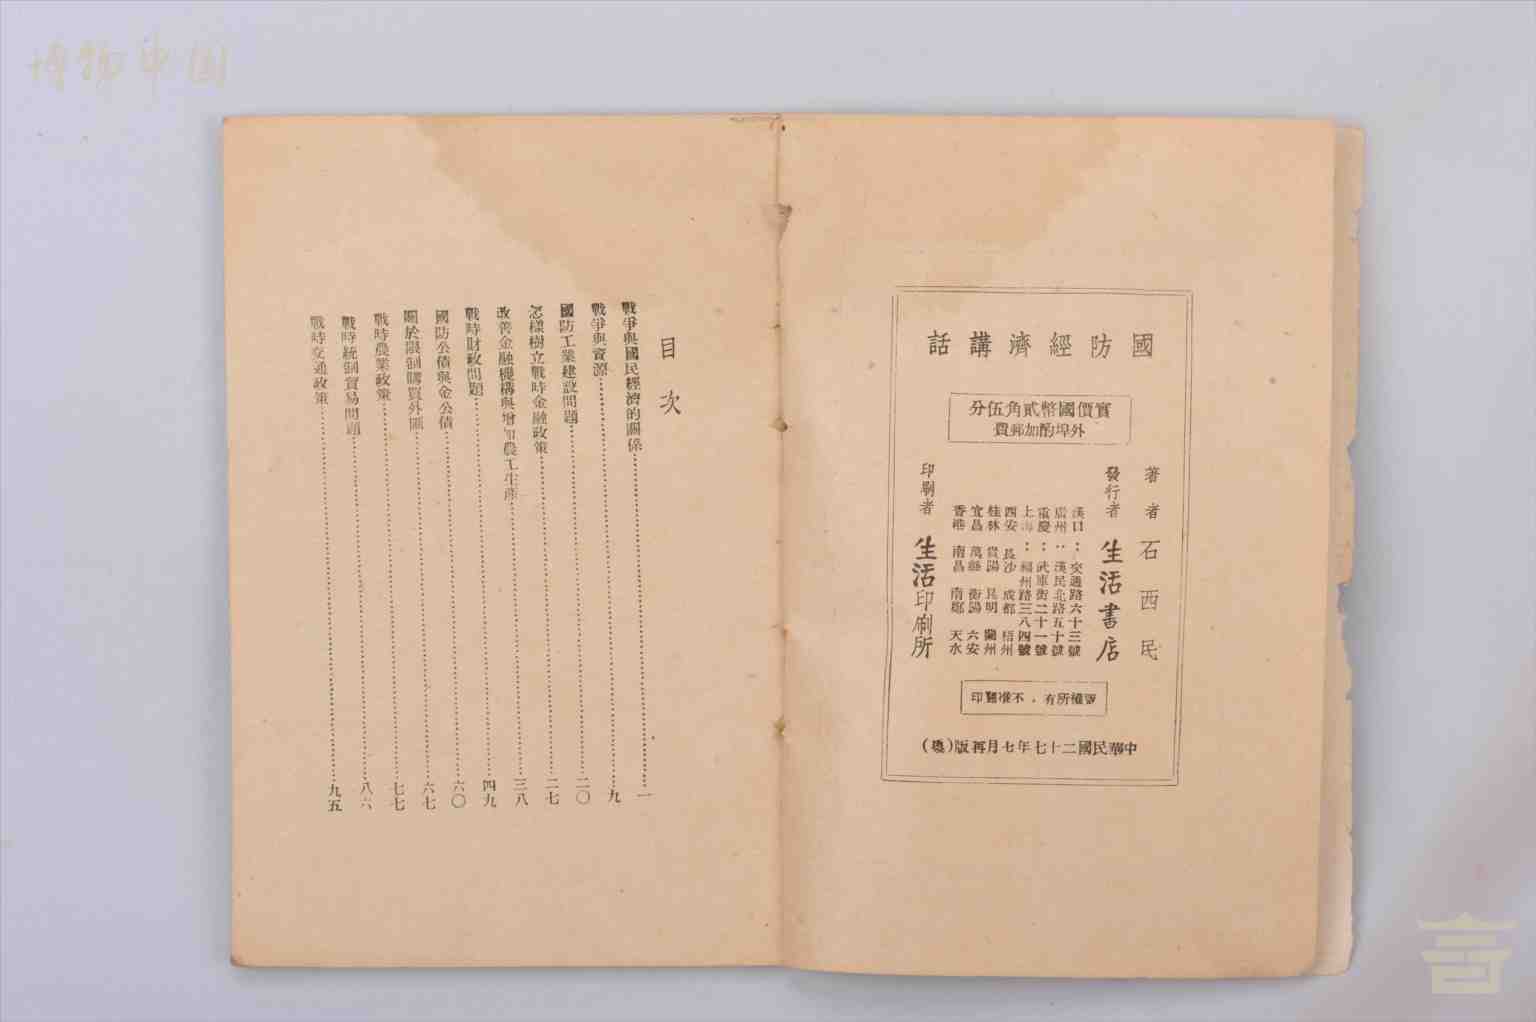 博物中国
國防經濟講話
實價國幣貳角伍分
外埠酌加郵費
著者 石西民
發行者 生活書店
漢口：交通路六十三號
廣州：漢民北路五十號
重慶：武庫街二十一號
上海：福州路三八四號
西安 長沙 成都 梧州
桂林 貴陽 昆明 蘭州
宜昌 萬縣 衡陽 六安
香港 南昌 南鄭 天水
印刷者 生活印刷所
版權所有．不准翻印
中華民國二十七年七月再版（漢）
目次
戰爭與國民經濟的關係……一
戰爭與資源……九
國防工業建設問題……二〇
怎樣樹立戰時金融政策……二七
改善金融機構與增加農工生產……三八
戰時財政問題……四九
國防公債與金公債……六〇
關於限制購買外匯……六七
戰時農業政策……七七
戰時統制貿易問題……八六
戰時交通政策……九五